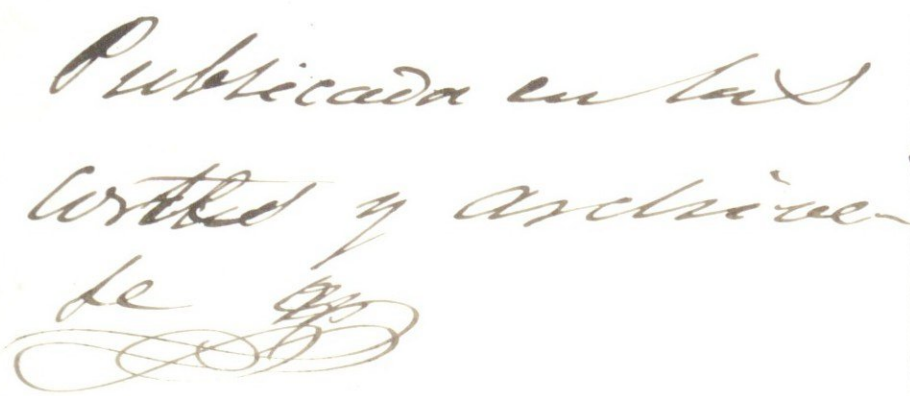 Publicada en las
Cortes y archive-
se